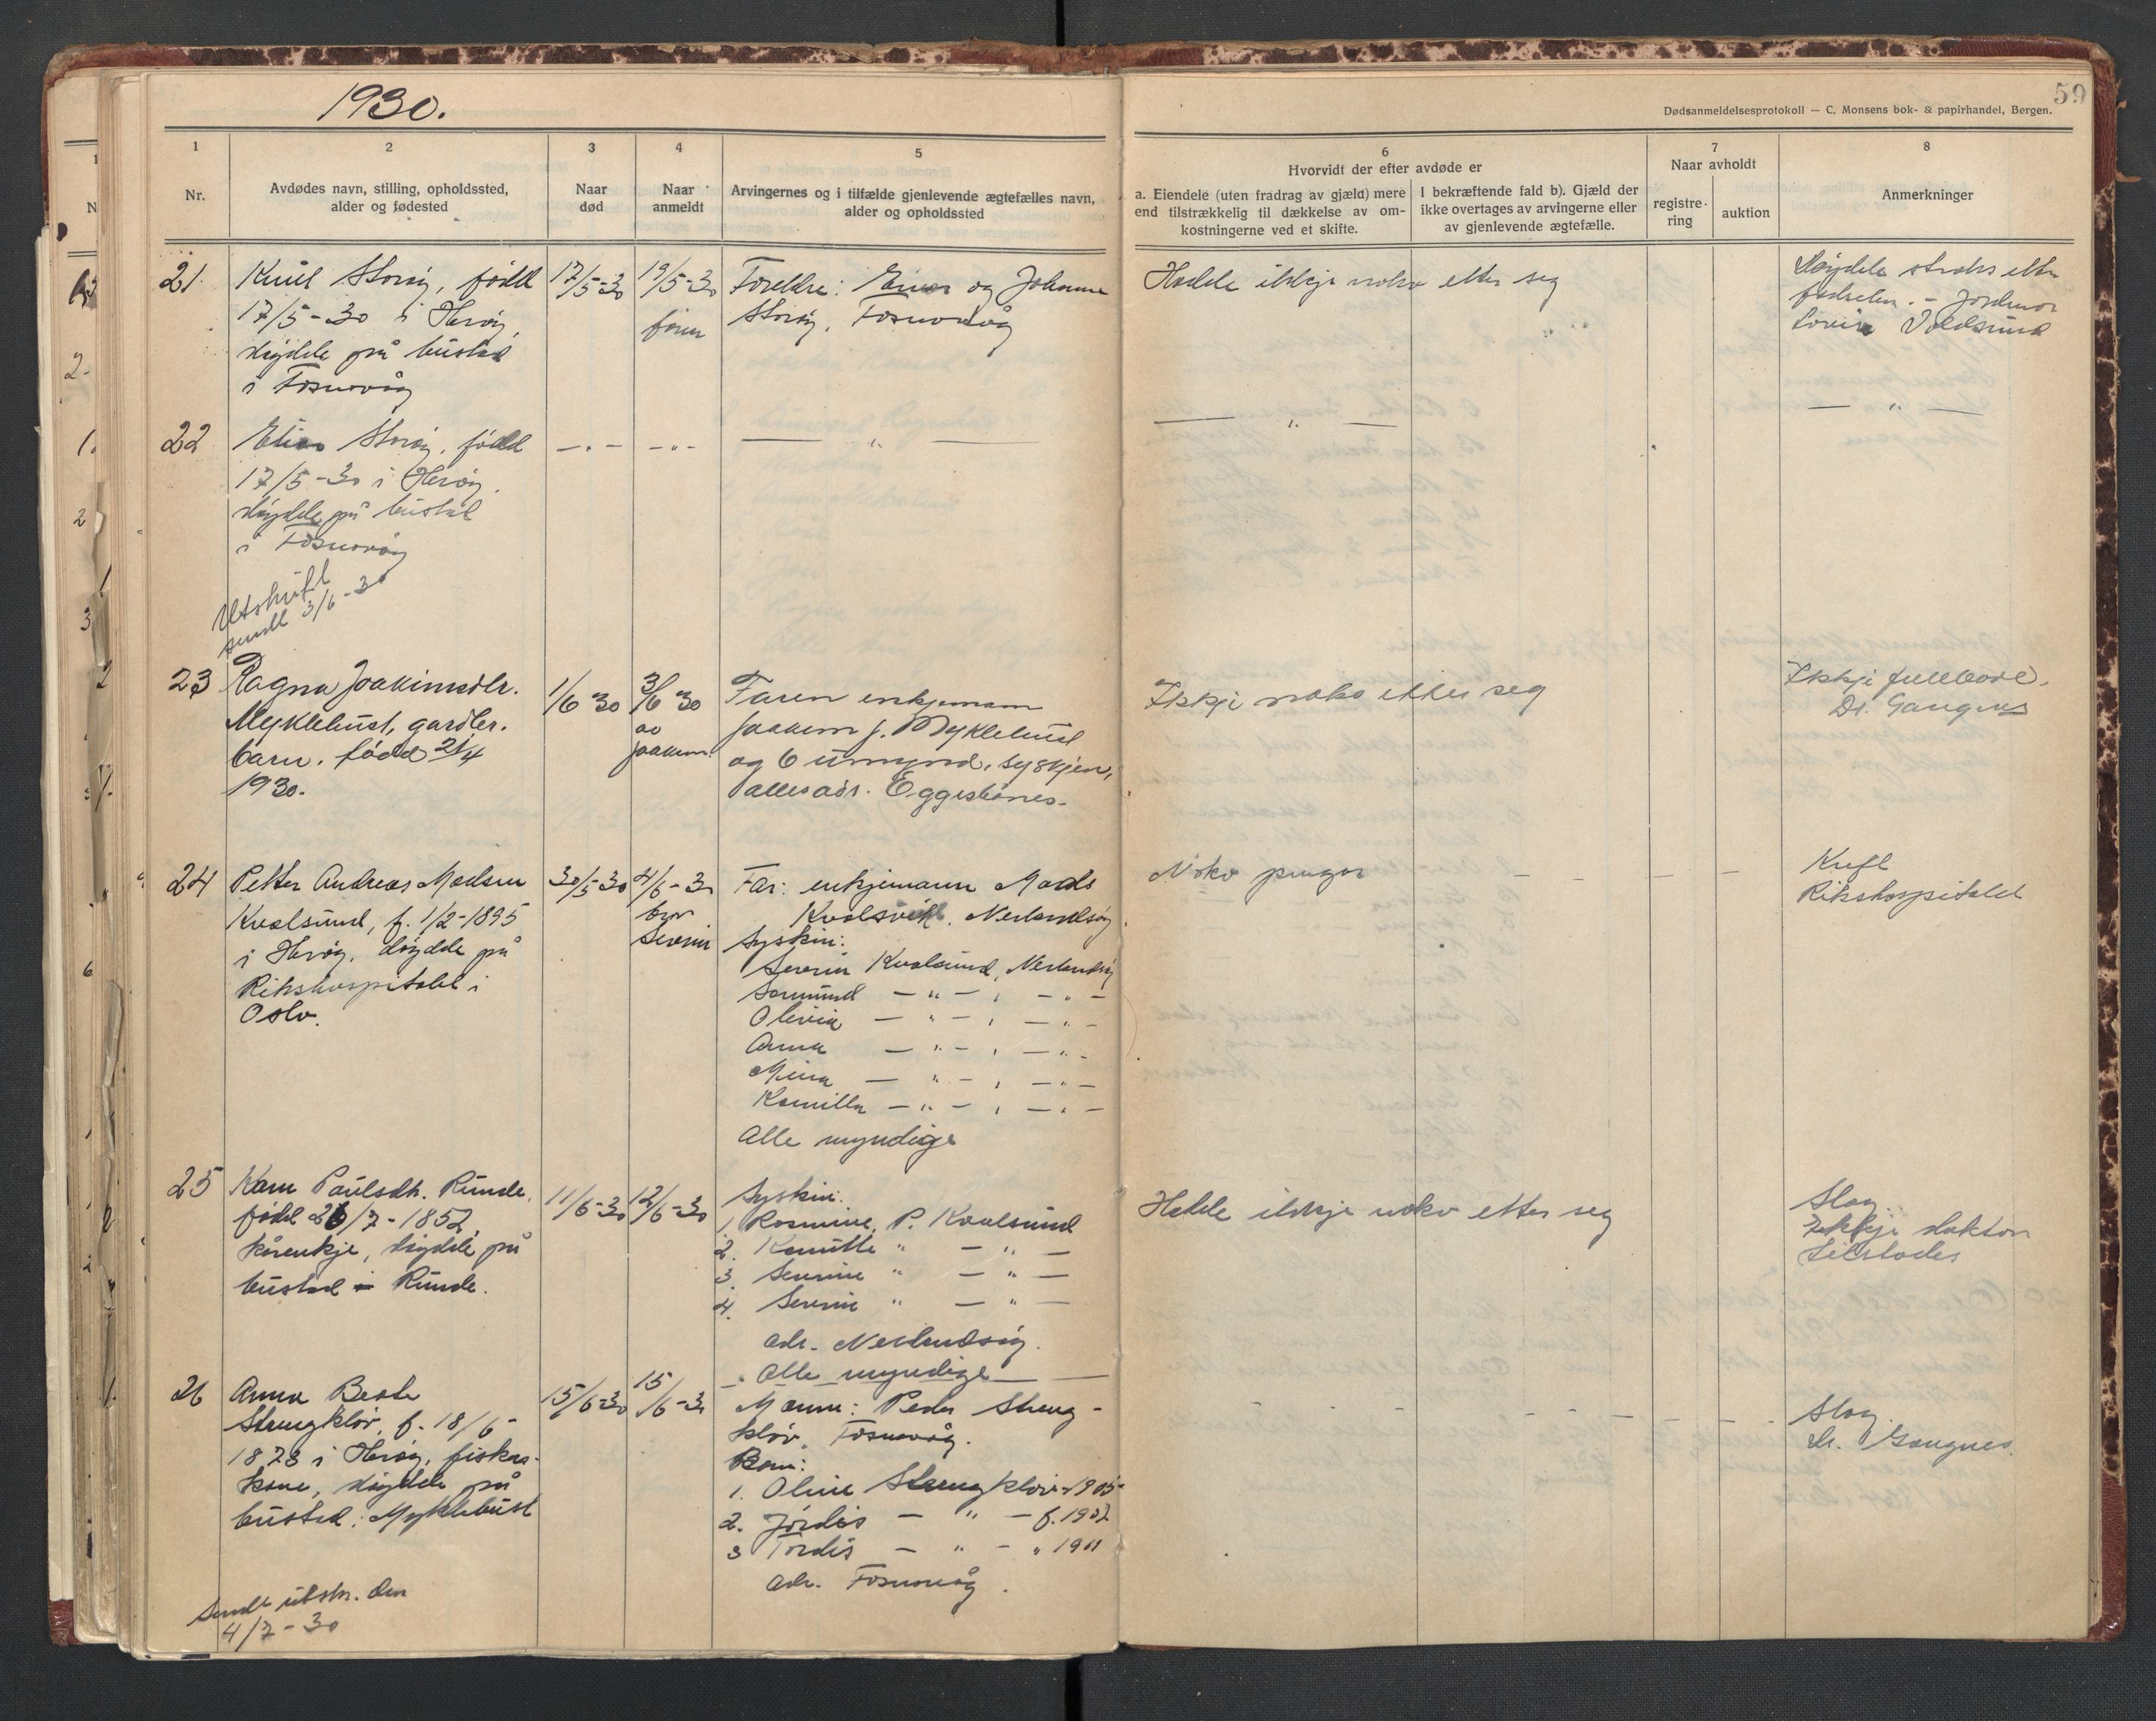 1930.
59
Dødsanmeldelsesprotokoll — C. Monsens bok- & papirhandel, Bergen.
1
Nr.
2
Avdødes navn, stilling, opholdssted,
alder og fødested
3
Naar
død
4
Naar
anmeldt
5
Arvingernes og i tilfælde gjenlevende ægtefælles navn,
alder og opholdssted
6
Hvorvidt der efter avdøde er
a. Eiendele (uten fradrag av gjæld) mere
end tilstrækkelig til dækkelse av om-
kostningerne ved et skifte.
I bekræftende fald b). Gjæld der
ikke overtages av arvingerne eller
av gjenlevende ægtefælle.
7
Naar avholdt
registre-
ring
auktion
8
Anmerkninger
21.
Knut Storøy, fødd
17/5-30 i Herøy,
døydde på bustad
i Fosnavåg
17/5-30
19/5-30
faren
Foreldre: Einar og Johanne
Storøy, Fosnavåg
Hadde ikkje noko etter seg
Døydde straks etter
fødselen. - Jordmor
Voldsund
22
Elias Storøy, fødd
17/5-30 i Herøy.
døydde på bustad
i Fosnavåg
— " —
— " —
— " —
— " —
— " —
Utskrift
sendt 3/6-30
23
Ragna Joakimsdtr.
Myklebust, gardbr.
barn. fødd 21/4
1930.
1/6 30
3/6 30
av
Joakim.
Faren enkjemann
Joakim J. Myklebust
og 6 umynd. syskjen,
alles adr. Eggesbønes.
Ikkje noko etter seg
Ikkje fullbore.
Dr. Gangnes
24
Petter Andreas Madsen
Kvalsund, f. 1/2-1895
i Herøy, døydde på
Rikshospitalet i
Oslo.
30/5-30
4/6-30
bror
Severin
Far: enkjemann Mads
Kvalsvik, Nerlandsøy
Syskin:
Severin Kvalsund, Nerlandsøy
Samund — " — , — " —
Olivia — " — , — " —
Anna — " — , — " —
Mina — " — , — " —
Kamilla — " — , — " —
Alle myndige
Noko pengar
— — — — —
Kreft
Rikshospitalet
25
Karn Paulsdtr. Runde,
fødd 26/7-1852,
kårenkje, døydde på
bustad i Runde.
11/6-30
12/6-30
Syskin:
1. Rasmine P. Kvalsund
2. Kamilla " — " —
3. Severine " — " —
4. Severin " — " —
adr. Nerlandsøy.
Alle myndige
Hadde ikkje noko etter seg
Slag
Ikkje doktor
tilstades
26
Anna Beate
Strengkløv, f. 18/6-
1873 i Herøy, fiskar-
kone, døydde på
bustad: Myklebust
15/6-30
15/6-30
Mann: Peder Streng-
kløv, Fosnavåg.
Born:
1. Oline Strengkløv 1905
2. Jordis — " — f. 1907
3 Tordis — " — " 1911
adr. Fosnavåg.
— — — — —
Slag.
Dr. Gangnes.
Sendt utskr. den
4/7-30